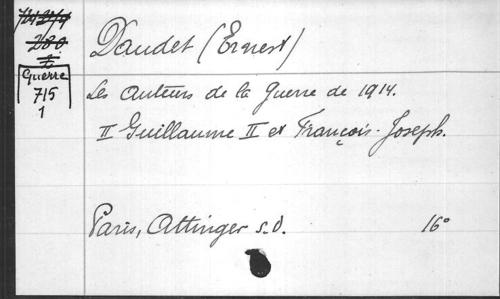 Daudet (Ernest)
Guerre
715
1
Les auteurs de la Guerre de 1914.
II Guillaume II et François-Joseph.
Paris, Attinger s.d.
16°